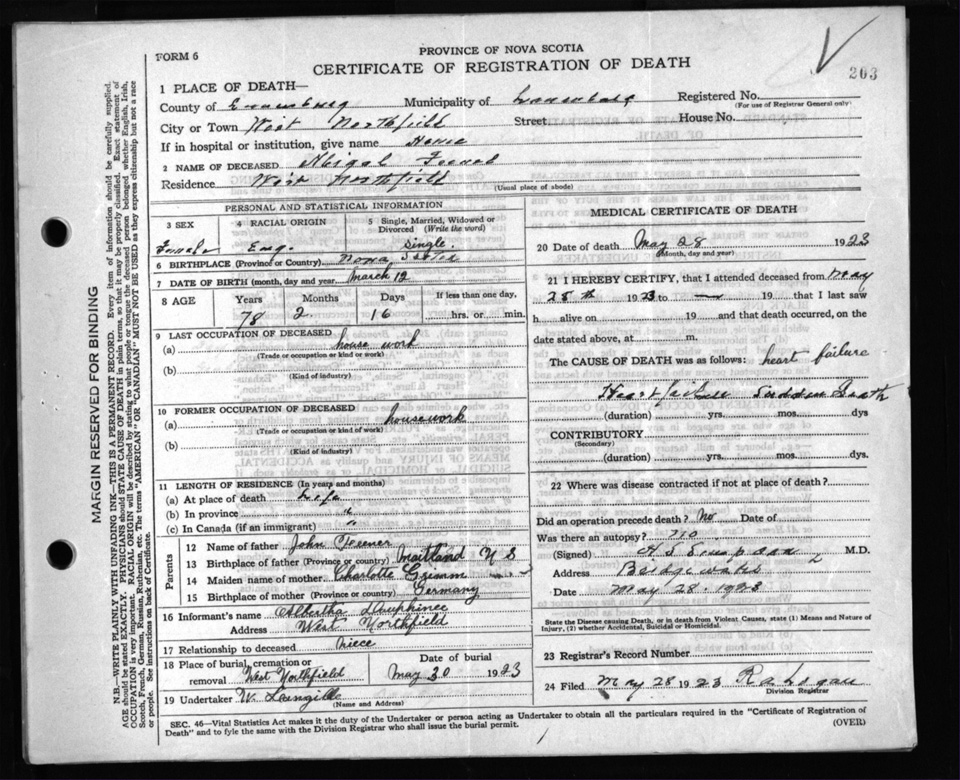 FORM 6
PROVINCE OF NOVA SCOTIA
CERTIFICATE OF REGISTRATION OF DEATH
203
1 PLACE OF DEATH—
County of Lunenburg Municipality of Lunenburg Registered No.
(For use of Registrar General only)
City or Town West Northfield Street House No.
If in hospital or institution, give name Home
2 NAME OF DECEASED Abigal
Residence West Northfield
(Usual place of abode)
PERSONAL AND STATISTICAL INFORMATION
3 SEX 4 RACIAL ORIGIN 5 Single, Married, Widowed or Divorced (Write the word)
Female Eng. Single.
6 BIRTHPLACE (Province or Country) Nova Scotia
7 DATE OF BIRTH (month, day and year) March 12
8 AGE Years Months Days If less than one day,
78 2 16 hrs. or min.
9 LAST OCCUPATION OF DECEASED
(a) house work
(Trade or occupation or kind or work)
(b)
(Kind of industry)
10 FORMER OCCUPATION OF DECEASED
(a) housework
(Trade or occupation or kind of work)
(b)
(Kind of industry)
11 LENGTH OF RESIDENCE (In years and months)
(a) At place of death Life
(b) In province "
(c) In Canada (if an immigrant) "
Parents
12 Name of father John Feener
13 Birthplace of father (Province or country) Maitland N S
14 Maiden name of mother Charlotte
15 Birthplace of mother (Province or country) Germany
16 Informant's name Albertha Dauphinee
Address West Northfield
17 Relationship to deceased niece
18 Place of burial, cremation or removal West Northfield Date of burial May 30 1923
19 Undertaker W. Langille
(Name and Address)
MEDICAL CERTIFICATE OF DEATH
20 Date of death May 28 1923
(Month, day and year)
21 I HEREBY CERTIFY, that I attended deceased from May
28th 1923 to — 19 that I last saw
h alive on 19 and that death occurred, on the
date stated above, at m.
The CAUSE OF DEATH was as follows: heart failure
Heart failure Sudden Death
(duration) yrs. mos. dys
CONTRIBUTORY
(Secondary)
(duration) yrs. mos. dys.
22 Where was disease contracted if not at place of death?
Did an operation precede death? No Date of
Was there an autopsy? no
(Signed) M.D.
Address Bridgewater
Date May 28. 1923
State the Disease causing Death, or in death from Violent Causes, state (1) Means and Nature of Injury, (2) whether Accidental, Suicidal or Homicidal.
23 Registrar's Record Number
24 Filed May 28 1923
Division Registrar
SEC. 46—Vital Statistics Act makes it the duty of the Undertaker or person acting as Undertaker to obtain all the particulars required in the "Certificate of Registration of
Death" and to fyle the same with the Division Registrar who shall issue the burial permit.
(OVER)
MARGIN RESERVED FOR BINDING
N.B.—WRITE PLAINLY WITH UNFADING INK—THIS IS A PERMANENT RECORD. Every item of information should be carefully supplied.
AGE should be stated EXACTLY. PHYSICIANS should STATE CAUSE OF DEATH in plain terms, so that it may be properly classified. Exact statement of
OCCUPATION is very important. RACIAL ORIGIN will be described by stating to what people or tongue the deceased person belonged whether English, Irish,
Scotch, French, German, Russian, Ruthenian, etc. The terms "AMERICAN" OR "CANADIAN" MUST NOT BE USED as they express citizenship but not a race
or people. See instructions on back of Certificate.